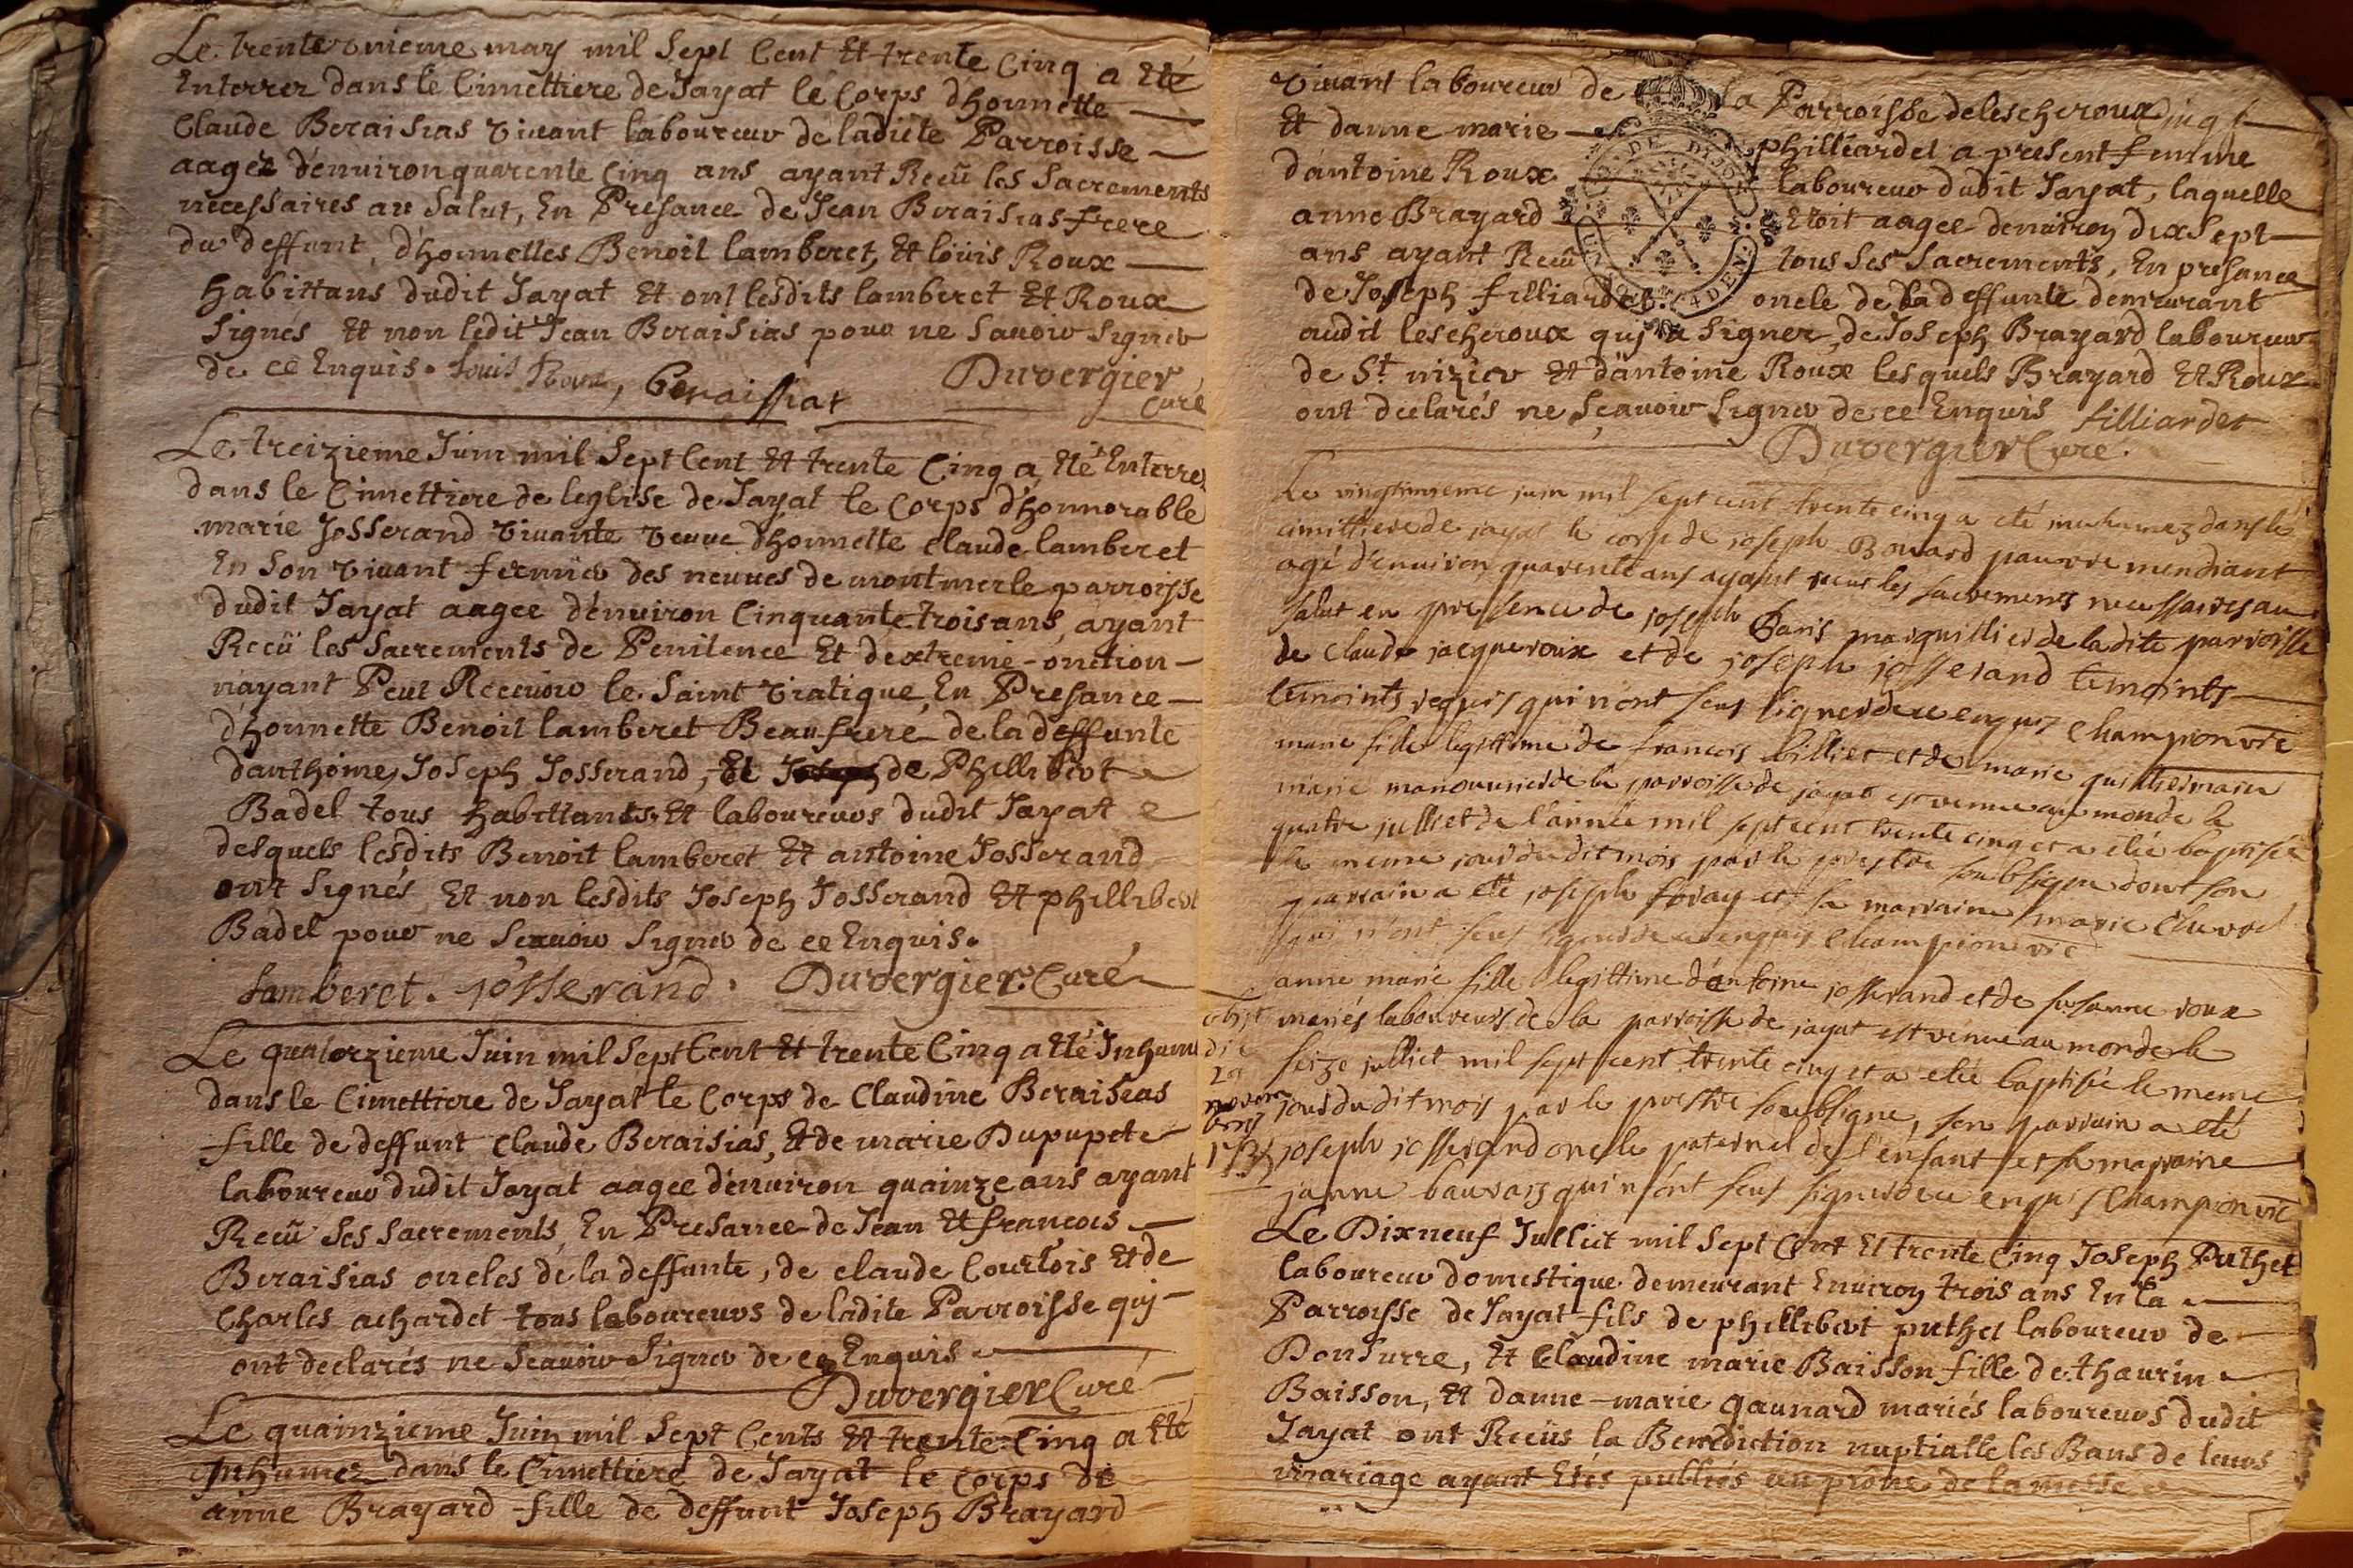 Le trente unieme may mil Sept Cent Et trente Cinq a Eté
Enterrer dans le Cimettiere de Jayat le Corps d'honnette
Claude Beraisias vivant laboureur de ladicte Parroisse
aagéz d'environ quarente Cinq ans ayant Reçû les Sacrements
necessaires au Salut, En Presance de Jean Beraisias frere
du deffunt, d'honnettes Benoit lamberet, Et loüis Roux
habittans dudit Jayat Et ont lesdits lamberet Et Roux
Signés Et non ledit Jean Beraisias pour ne Savoir Signer
de ce Enquis. Louis Roux, Beraissiat Duvergier
Curé
Le treizieme Juin mil Sept Cent Et trente Cinq a, Eté Enterrez
dans le Cimettiere de leglise de Jayat le Corps d'honnorable
marie Josserand vivante veuve d'honnette Claude lamberet
En Son vivant fermier des neuves de montmerle parroisse
dudit Jayat aagee d'environ Cinquante trois ans, ayant
Reçû les Sacrements de Penitence Et dextreme-onction
nayant Peut Recevoir le Saint viatique, En Presance
d'honnette Benoit lamberet Beaufrere de la deffunte
d'anthoine, Joseph Josserand, Et de Phillibert
Badel tous habittants, Et laboureurs dudit Jayat
desquels lesdits Benoit lamberet Et antoine Josserand
ont Signés Et non lesdits Joseph Josserand Et phillibert
Badel pour ne Scavoir Signer de ce Enquis.
Lamberet. josserand. Duvergier Curé
Le quatorzieme Juin mil Sept Cent Et trente Cinq a Eté Inhumé
dans le Cimettiere de Jayat le Corps de Claudine Beraisias
fille de deffunt Claude Beraisias, Et de marie Dupupet
laboureur dudit Jayat aagee d'environ quainze ans ayant
Reçû Ses Sacrements, En Presance de Jean Et françois
Beraisias oncles de la deffunte, de claude Courtois Et de
Charles achardet tous laboureurs de ladite Parroisse quj
ont declarés ne Scavoir Signer de ce Enquis
Duvergier Curé
Le quainzieme Juin mil Sept Cents Et trente Cinq a Eté
Inhumez dans le Cimettiere de Jayat le Corps de
anne Brayard fille de deffunt Joseph Brayard
vivant laboureur de la Parroisse de lescheroux
Et danne marie philliardet a present femme
d'antoine Roux laboureur dudit Jayat, laquelle
anne Brayard Etoit aagee denviron dix Sept
ans ayant Reçû tous Ses Sacrements, En presance
de Joseph filliardet oncle de la deffunte demeurant
audit lescheroux quj a Signer, de Joseph Brayard laboureur
de St. nizier Et d'antoine Roux lesquels Brayard Et Roux
ont declarés ne Sçavoir Signer de ce Enquis filliardet
Duvergier Curé.
Le vingtunieme juin mil sept cent trente cinq a eté inhumez dans le
cimittiere de jayat le corps de joseph Bouvard pauvre mendiant
agé d'environ quarente ans ayant receus les sacrements necessaires au
salut en presence de joseph Paris marguillier de la dite parroisse
de Claude jacqueroux et de joseph josserand temoints
temoints requis qui n'ont seus signer de ce enquis Champion vic
marie fille legittime de francois billiet et de marie
manouvriers de la parroisse de jayat est venue au monde le
quatre julliet de l'année mil sept cent trente cinq et a etée baptisée
le meme jour du dit mois par le prestre soubsigne dont son
parrain a eté joseph foray et sa marraine marie
qui n'ont seus signer de ce enquis Champion vic
anne marie fille legittime d'antoine josserand et de susanne roux
mariés laboureurs de la parroisse de jayat est venue au monde le
seize julliet mil sept cent trente cinq et a etée baptisée le meme
jour du dit mois par le prestre soubsigne, son parrain a eté
joseph josserand oncle paternel de l'enfant et sa marraine
janne bauvais qui n'ont seus signer de ce enquis Champion vic
obijt
die
29
novem
bris
Le Dixneuf Julliet mil Sept Cent Et trente Cinq Joseph Puthet
laboureur domestique demeurant Environ trois ans En la
Parroisse de Jayat fils de phillibert puthet laboureur de
Donsurre, Et Claudine marie Baisson fille de thaurin
Baisson, Et danne-marie gaunard mariés laboureurs dudit
Jayat ont Reçûs la Benediction nuptialle les Bans de leurs
mariage ayant Etés publiés au prône de la messe